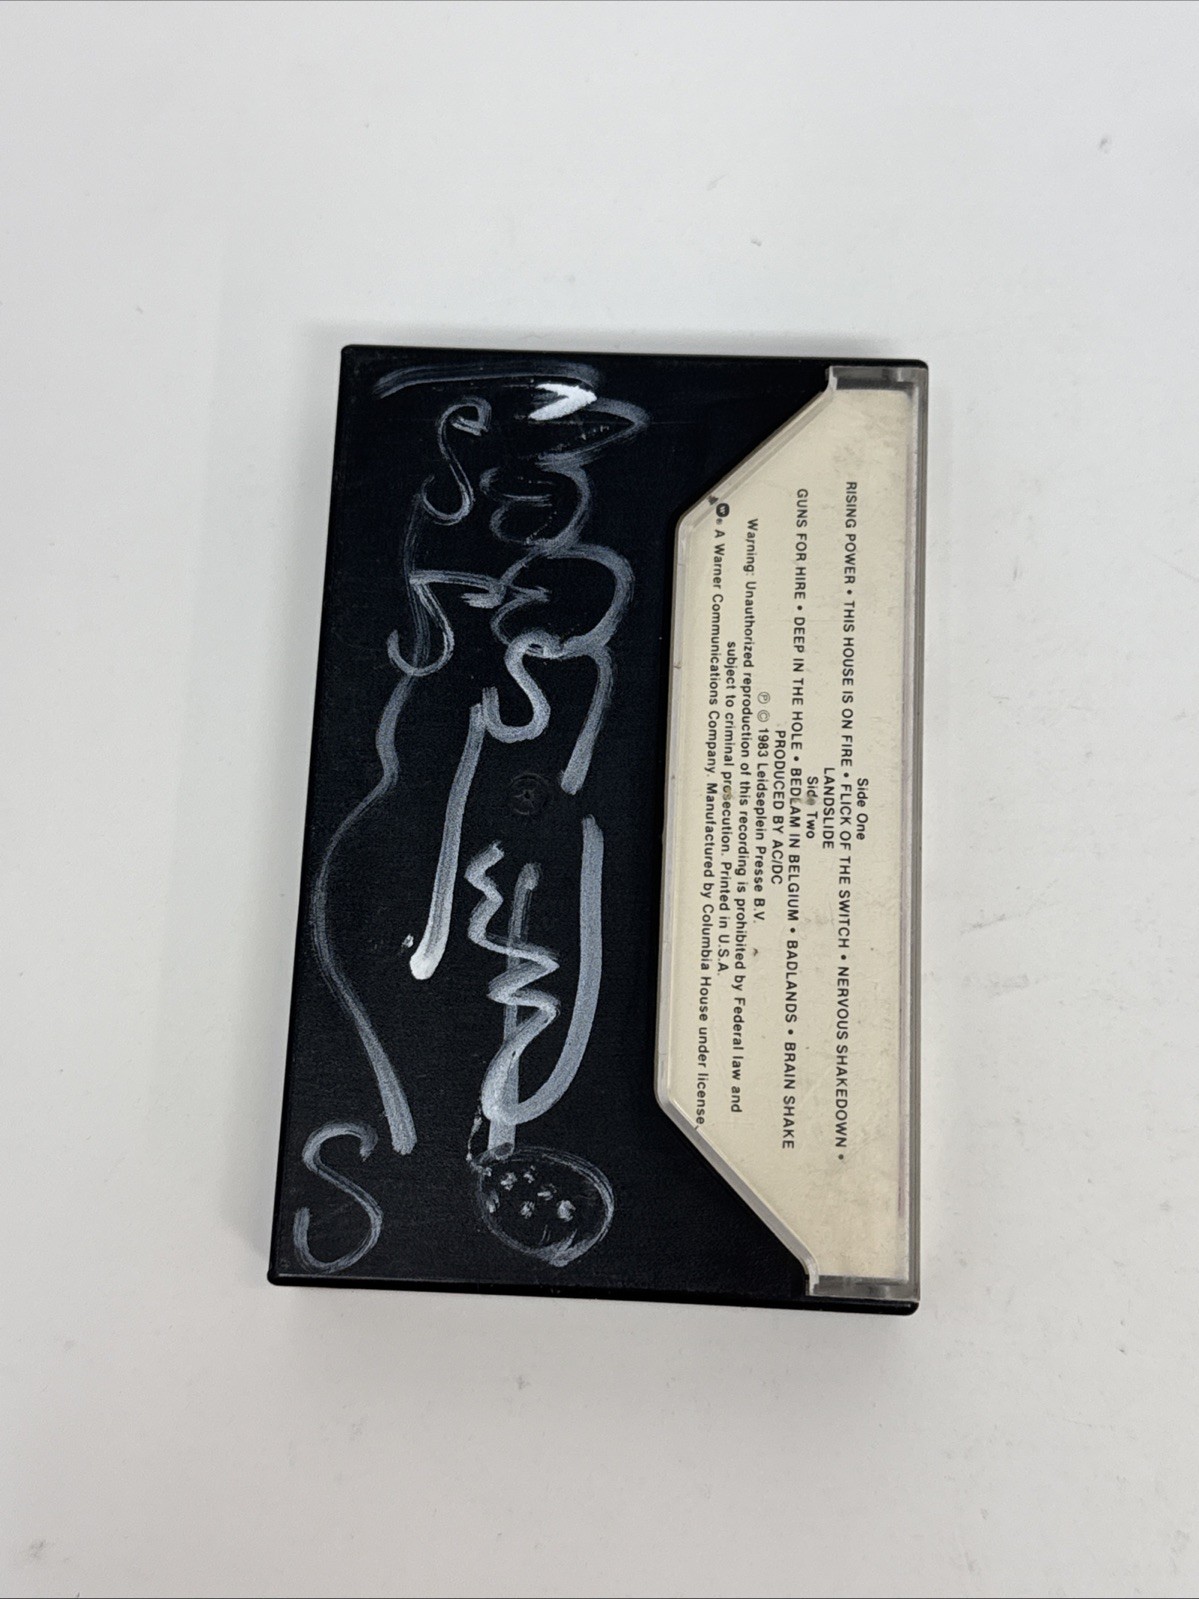 Side One
RISING POWER • THIS HOUSE IS ON FIRE • FLICK OF THE SWITCH • NERVOUS SHAKEDOWN •
LANDSLIDE
Side Two
GUNS FOR HIRE • DEEP IN THE HOLE • BEDLAM IN BELGIUM • BADLANDS • BRAIN SHAKE
PRODUCED BY AC/DC
℗ © 1983 Leidseplein Presse B.V.
Warning: Unauthorized reproduction of this recording is prohibited by Federal law and
subject to criminal prosecution. Printed in U.S.A.
A Warner Communications Company. Manufactured by Columbia House under license.